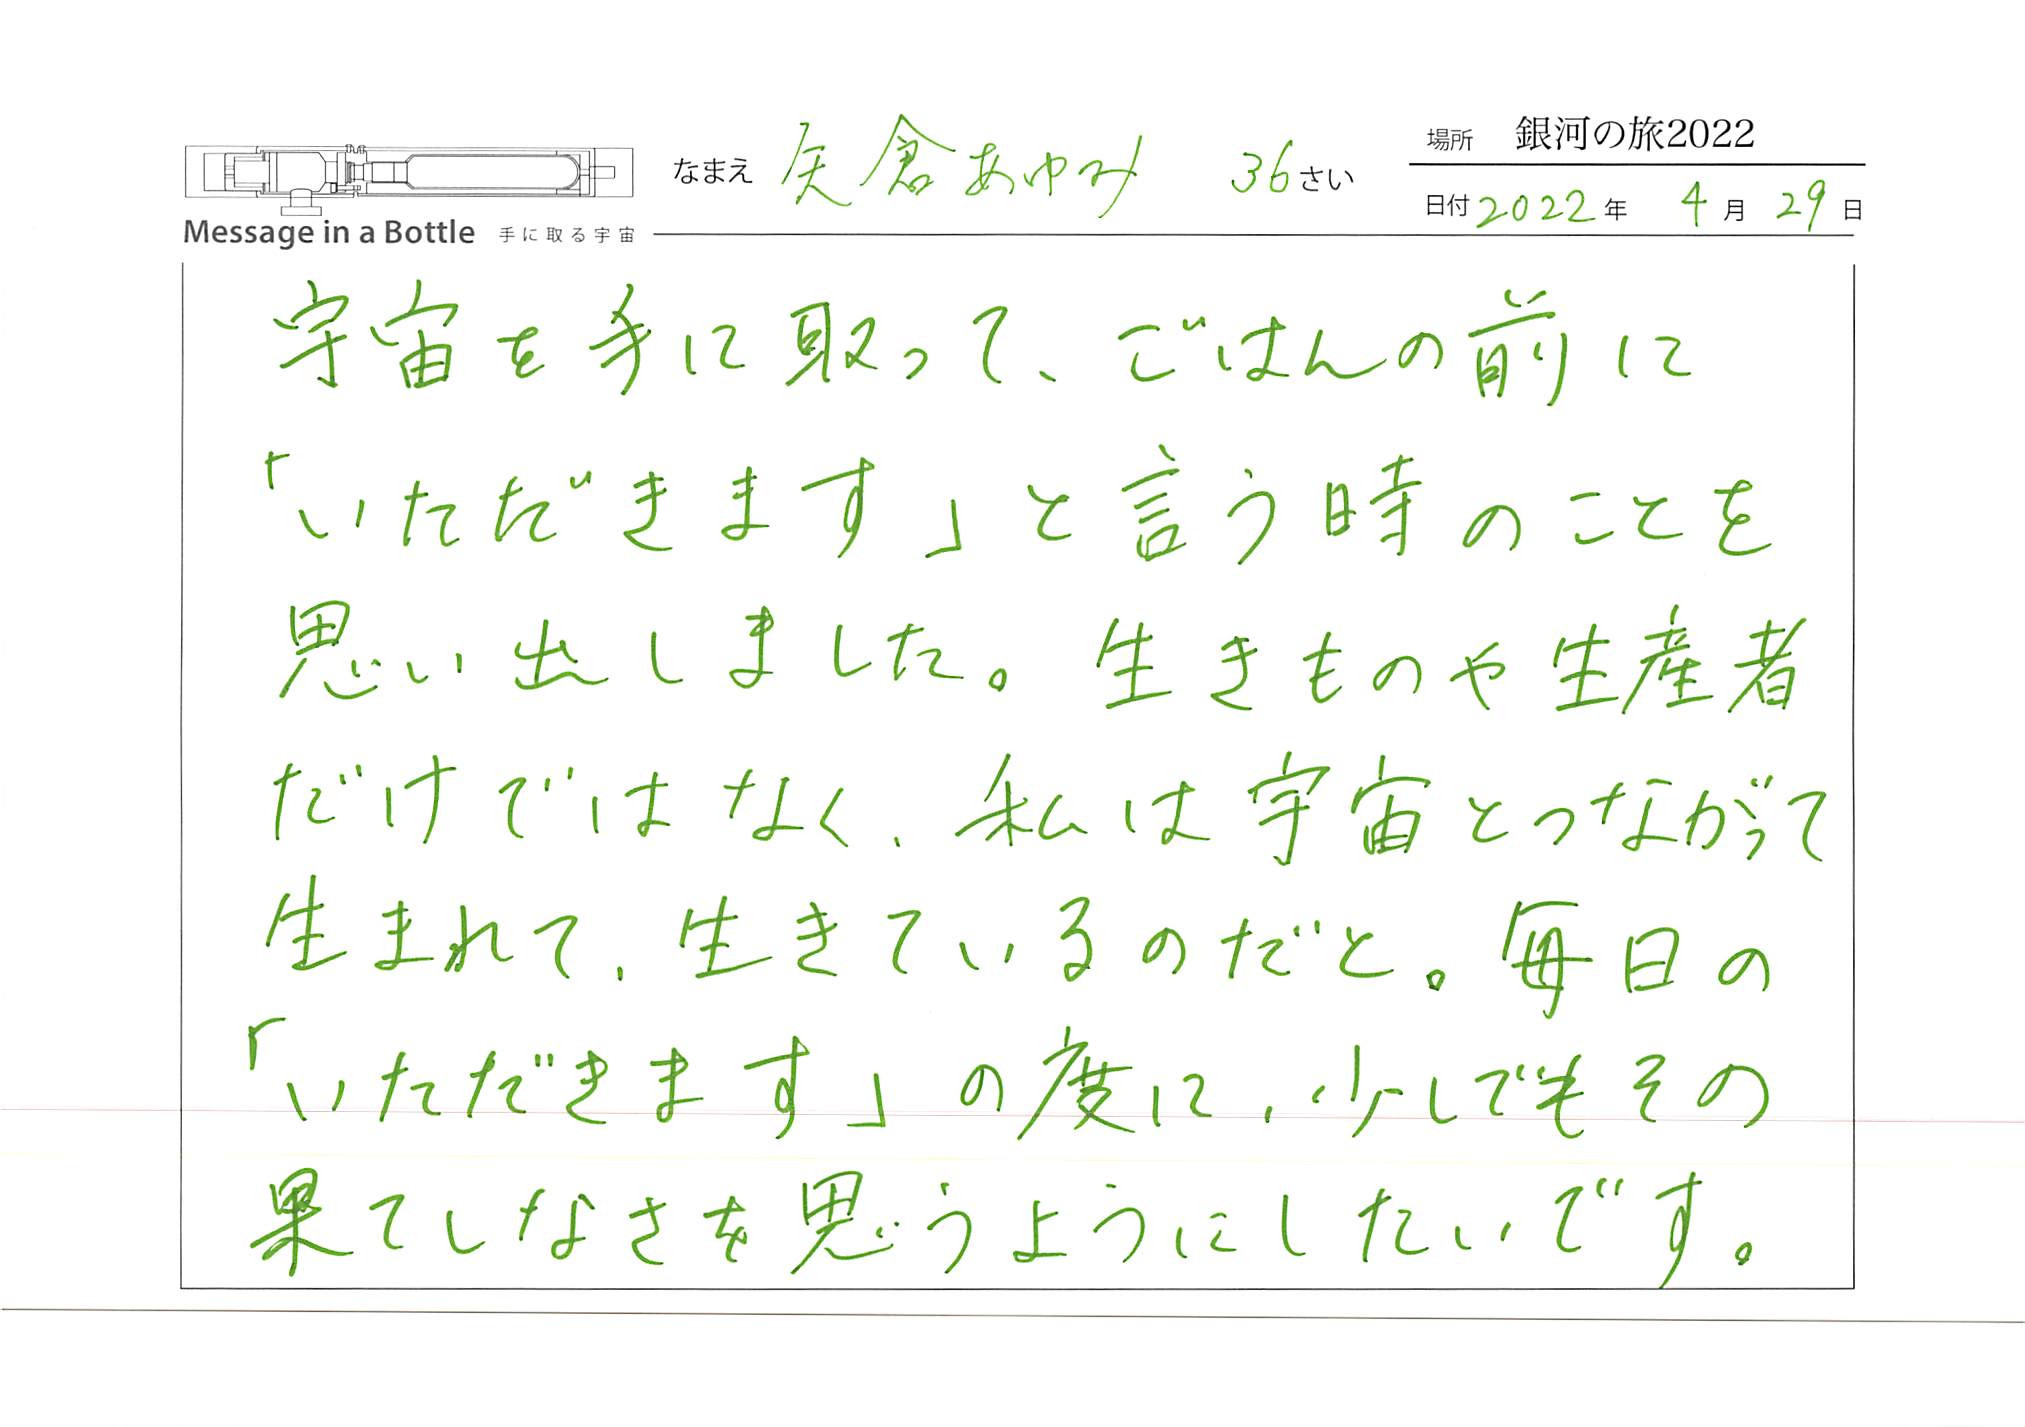 なまえ 矢倉あゆみ 36さい
場所 銀河の旅2022
日付 2022年 4月 29日
Message in a Bottle 手に取る宇宙
宇宙を手に取って、ごはんの前に
「いただきます」と言う時のことを
思い出しました。生きものや生産者
だけではなく、私は宇宙とつながって
生まれて、生きているのだと。毎日の
「いただきます」の度に、少しでもその
果てしなさを思うようにしたいです。